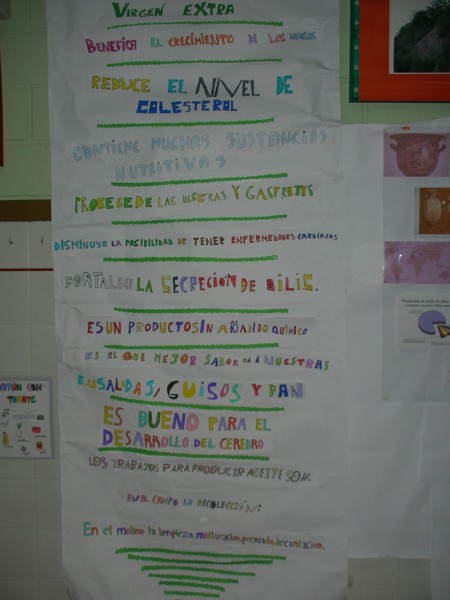 VIRGEN EXTRA
BENEFICA EL CRECIMIENTO DE LOS NIÑOS
REDUCE EL NIVEL DE
COLESTEROL
CONTIENE MUCHAS SUSTANCIAS
NUTRITIVAS
PROTEGE DE LAS ULSERAS Y GASTRITIS
DISMINUYE LA POSIBILIDAD DE TENER ENFERMEDADES CARDIACAS
FORTALECE LA SECRECION DE BILIS.
ES UN PRODUCTO SIN AÑANDO QUÍMICO
ES EL QUE MEJOR SABOR DA A NUESTRAS
ENSALADAS, GUISOS Y PAN
ES BUENO PARA EL
DESARROLLO DEL CEREBRO
LOS TRABAJOS PARA PRODUCIR ACEITE SON.
EN EL CAMPO LA RECOLECCIÓN:
En el molino la limpieza, molturacion, prensado, decantacion.
TOMATE